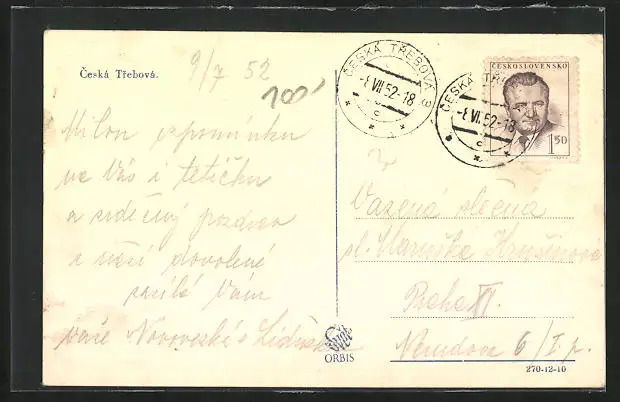 Česká Třebová.
9/7 52
100
Milou vzpomínku
na Vás i tetičku
a srdečný pozdrav
z naší dovolené
posílá Vám
vaše Novoveská s Liduškou
ČESKÁ TŘEBOVÁ 3
-8.VII.52-18
c
ČESKÁ TŘE
-8.VI.52-18
c
ČESKOSLOVENSKO
1 50
Vážená slečna
sl. Hanička
Praha XI.
Nerudova 6/I. p.
ORBIS
270-12-10